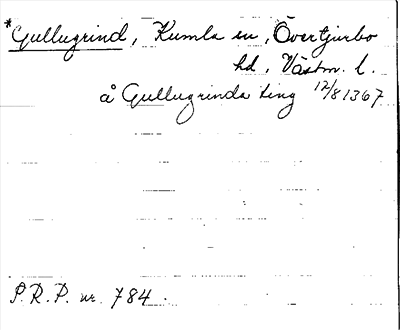 *Gullugrind, Kumla sn, Övertjurbo
hd, Västm. l.
å Gullugrinda ting 12/8 1367
P.R.P. nr. 784.